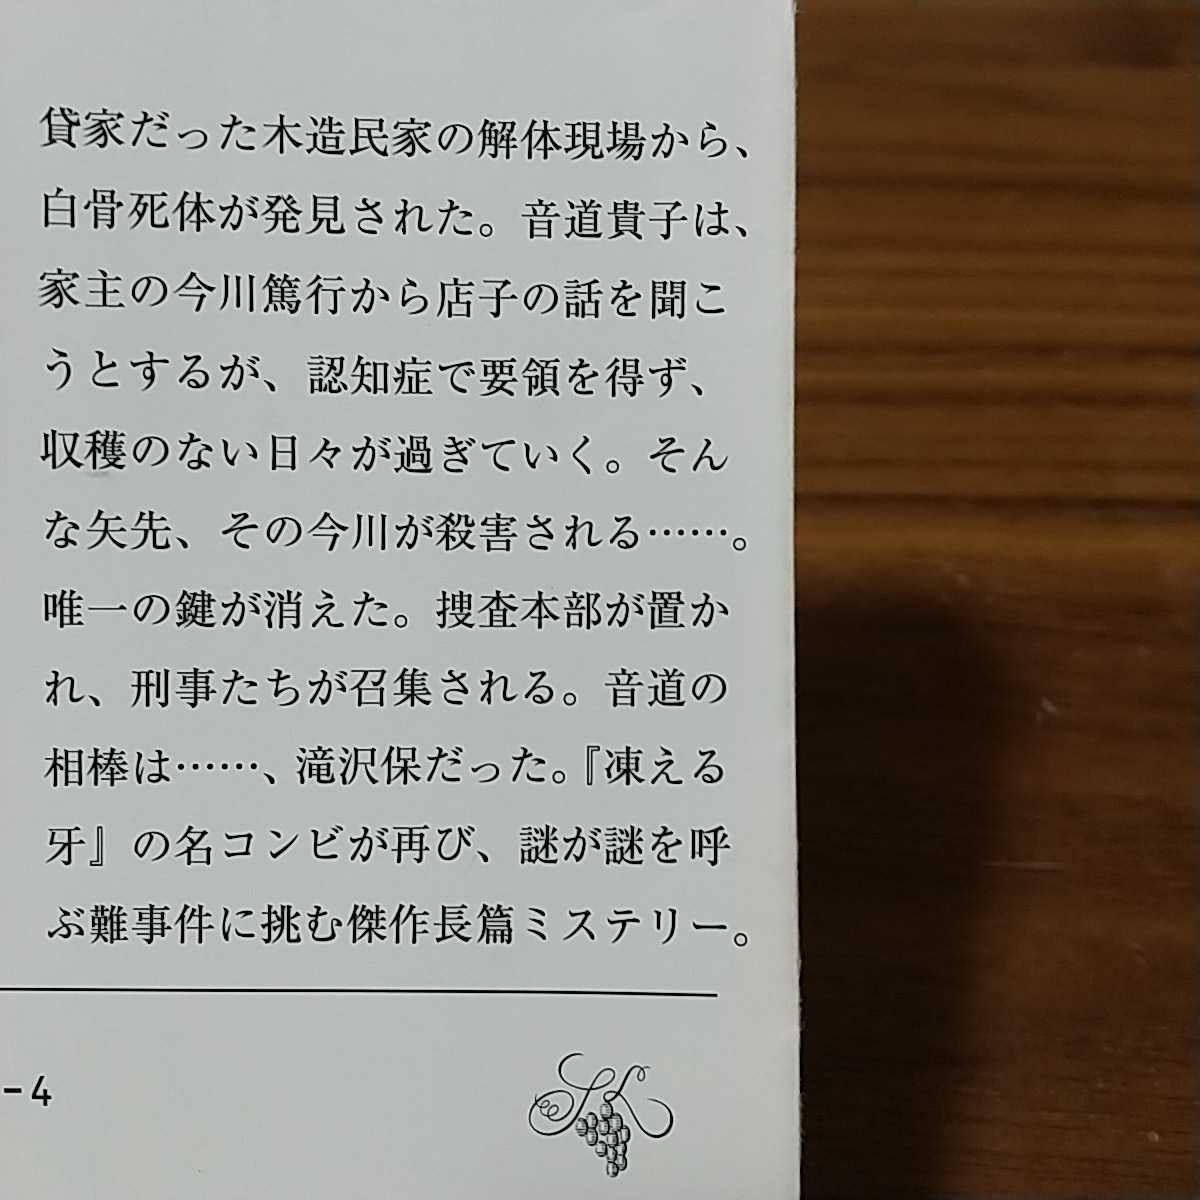 貸家だった木造民家の解体現場から、
白骨死体が発見された。音道貴子は、
家主の今川篤行から店子の話を聞こ
うとするが、認知症で要領を得ず、
収穫のない日々が過ぎていく。そん
な矢先、その今川が殺害される……。
唯一の鍵が消えた。捜査本部が置か
れ、刑事たちが召集される。音道の
相棒は……、滝沢保だった。『凍える
牙』の名コンビが再び、謎が謎を呼
ぶ難事件に挑む傑作長篇ミステリー。
-4
SK